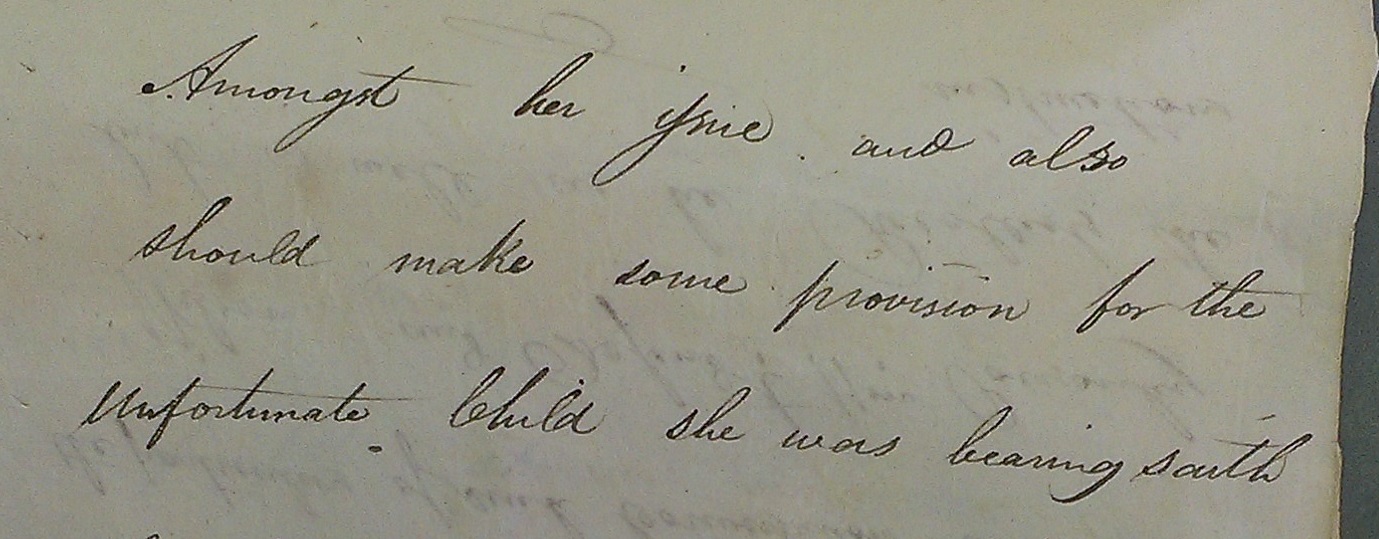 Amongst her issue and also
should make some provision for the
unfortunate Child she was bearing saith